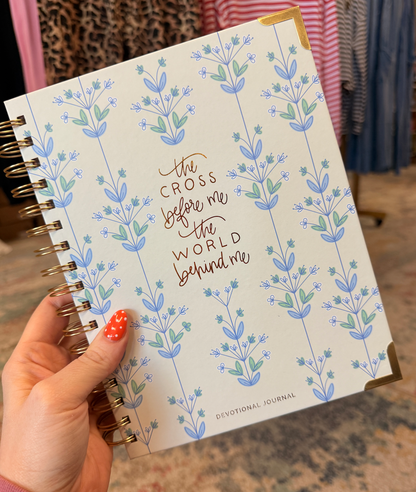 the
CROSS
before me
the
WORLD
behind me
DEVOTIONAL JOURNAL